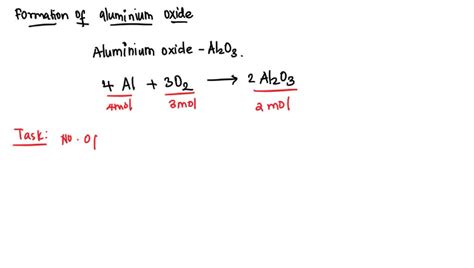 Formation of aluminium oxide
Aluminium oxide - Al₂O₃.
4 Al + 3O₂ ⟶ 2 Al₂O₃
4mol 3mol 2mol
Task: No. of